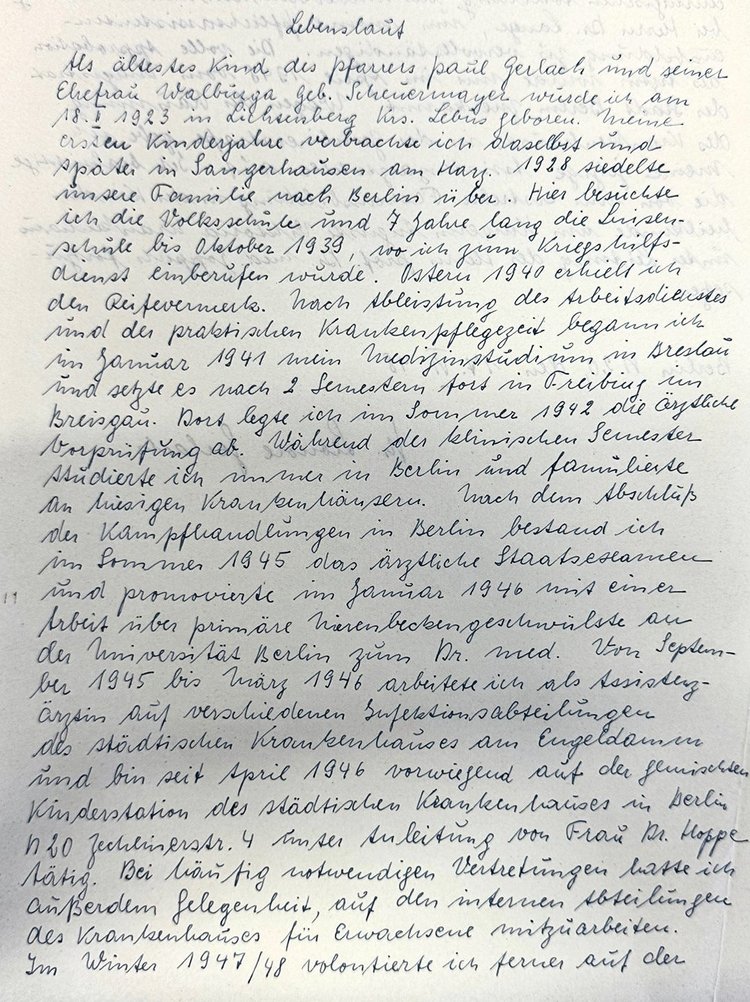 Lebenslauf
Als ältestes Kind des Pfarrers Paul Gerlach und seiner
Ehefrau Walburga geb. Scheuermayer wurde ich am
18. V 1923 in Lichtenberg Krs. Lebus geboren. Meine
ersten Kinderjahre verbrachte ich daselbst und
später in Sangerhausen am Harz. 1928 siedelte
unsere Familie nach Berlin über. Hier besuchte
ich die Volksschule und 7 Jahre lang die Luisen-
schule bis Oktober 1939, wo ich zum Kriegshilfs-
dienst einberufen wurde. Ostern 1940 erhielt ich
den Reifevermerk. Nach Ableistung des Arbeitsdienstes
und der praktischen Krankenpflegezeit begann ich
im Januar 1941 mein Medizinstudium in Breslau
und setzte es nach 2 Semestern fort in Freiburg im
Breisgau. Dort legte ich im Sommer 1942 die ärztliche
Vorprüfung ab. Während der klinischen Semester
studierte ich immer in Berlin und famulierte
an hiesigen Krankenhäusern. Nach dem Abschluß
der Kampfhandlungen in Berlin bestand ich
im Sommer 1945 das ärztliche Staatsexamen
und promovierte im Januar 1946 mit einer
Arbeit über primäre Nierenbeckengeschwülste an
der Universität Berlin zum Dr. med. Von Septem-
ber 1945 bis März 1946 arbeitete ich als Assistenz-
ärztin auf verschiedenen Infektionsabteilungen
des städtischen Krankenhauses am Engeldamm
und bin seit April 1946 vorwiegend auf der gemischten
Kinderstation des städtischen Krankenhauses in Berlin
N 20 Zechlinerstr. 4 unter Anleitung von Frau Dr. Hoppe
tätig. Bei häufig notwendigen Vertretungen hatte ich
außerdem Gelegenheit, auf den internen Abteilungen
des Krankenhauses für Erwachsene mitzuarbeiten.
Im Winter 1947/48 volontierte ich ferner auf der